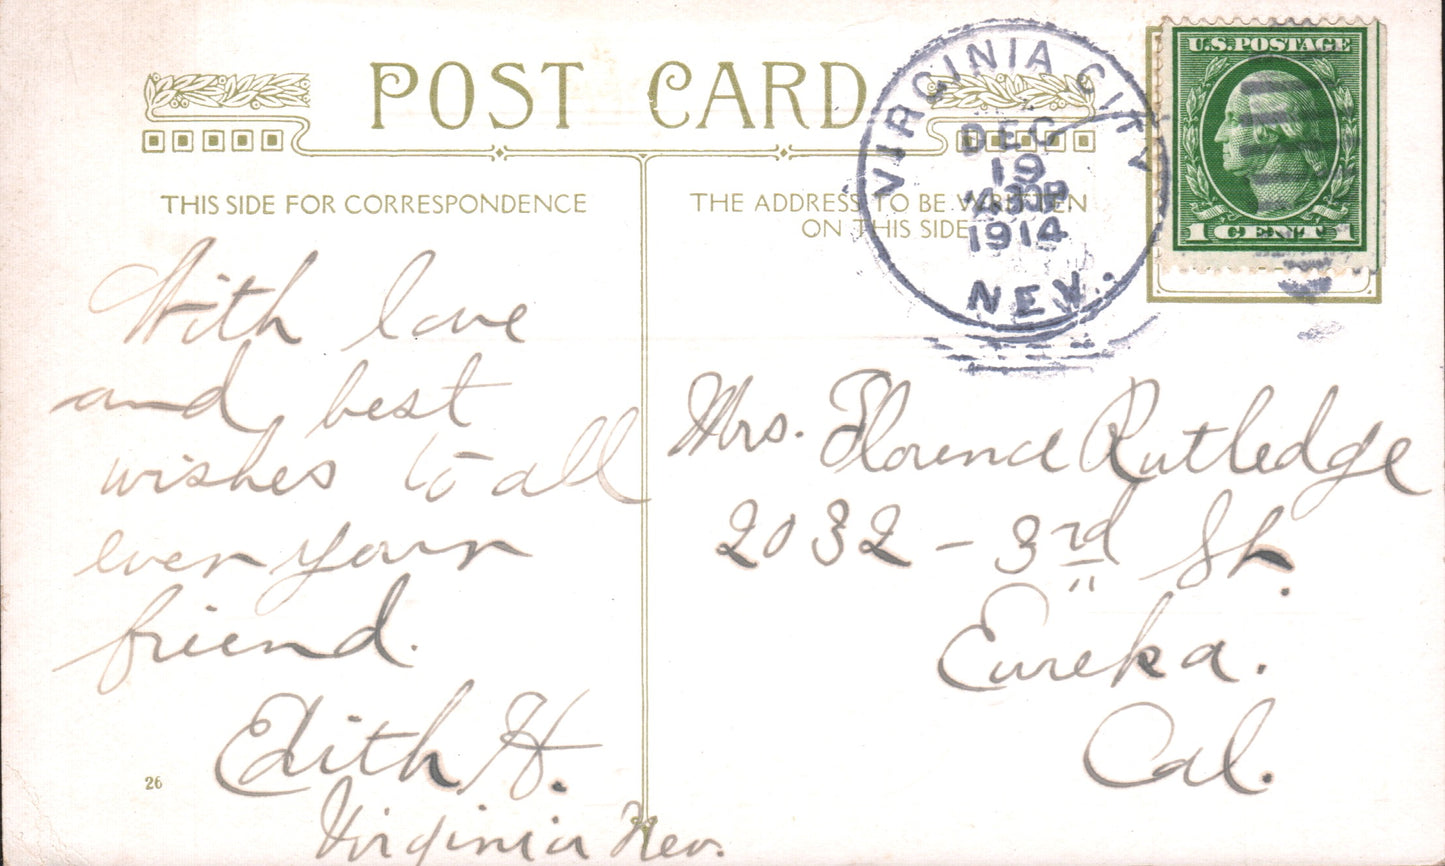 POST CARD
THIS SIDE FOR CORRESPONDENCE
THE ADDRESS TO BE WRITTEN
ON THIS SIDE
VIRGINIA CITY
DEC
19
1914
NEV.
U.S. POSTAGE
1 CENT 1
With love
and best
wishes to all
ever your
friend.
Edith H.
Virginia Nev.
26
Mrs. Florence Rutledge
2032 - 3rd St.
Eureka.
Cal.